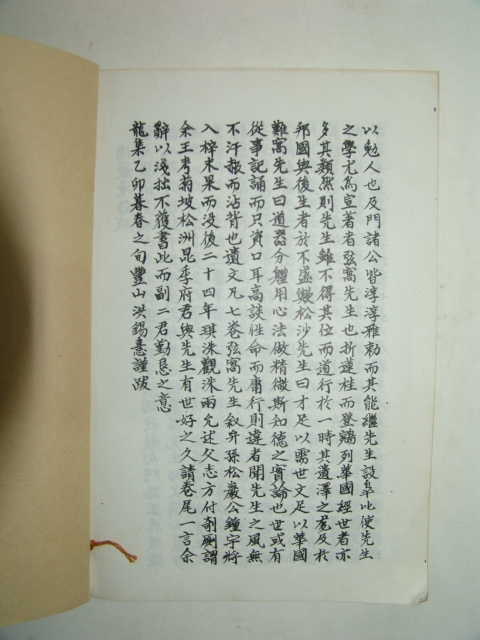 以勉人也及門諸公皆淳淳雅勅而其能繼先生設皐比使先生
之學尤爲宣著者弦窩先生也折蓮桂而登鵷列華國經世者亦
多其類然則先生雖不得其位而道行於一時其遺澤之寃及於
邦國與後生者於不盛歟松沙先生曰才足以需世文足以華國
難窩先生曰道器分軆用心法做精微斯知德之實論也世或有
從事記誦而只資口耳高談性命而庸行則違者聞先生之風無
不汗赧而沾背也遺文凡七卷弦窩先生叙弁孫松巖公鐘宇將
入梓未果而没後二十四年琪洙觀洙兩允述父志方付剞劂謂
余王考菊坡松洲昆季府君與先生有世好之久請卷尾一言余
辭以淺拙不獲書此而副二君勤恳之意
龍集乙卯暮春之旬豐山洪錫憙謹跋